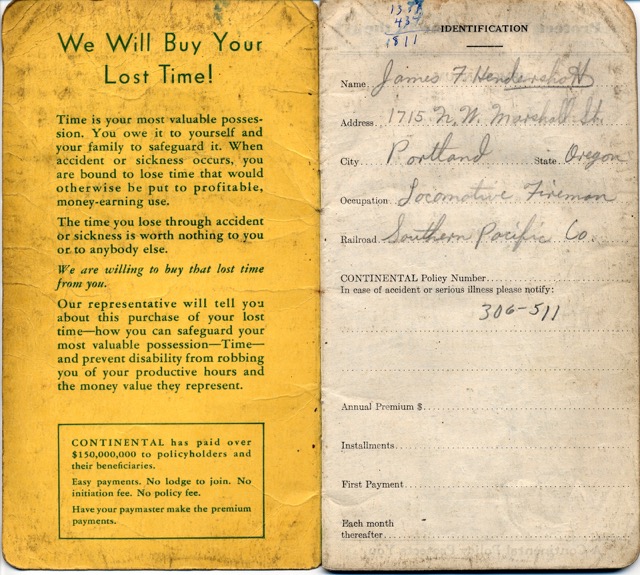 We Will Buy Your
Lost Time!
Time is your most valuable posses-
sion. You owe it to yourself and
your family to safeguard it. When
accident or sickness occurs, you
are bound to lose time that would
otherwise be put to profitable,
money-earning use.
The time you lose through accident
or sickness is worth nothing to you
or to anybody else.
We are willing to buy that lost time
from you.
Our representative will tell you
about this purchase of your lost
time—how you can safeguard your
most valuable possession—Time—
and prevent disability from robbing
you of your productive hours and
the money value they represent.
CONTINENTAL has paid over
$150,000,000 to policyholders and
their beneficiaries.
Easy payments. No lodge to join. No
initiation fee. No policy fee.
Have your paymaster make the premium
payments.
434
1811
IDENTIFICATION
Name James F. Hendershott
Address 1715 N.W. Marshall St.
City Portland State Oregon
Occupation Locomotive Fireman
Railroad Southern Pacific Co.
CONTINENTAL Policy Number
In case of accident or serious illness please notify:
306-511
Annual Premium $
Installments
First Payment
Each month
thereafter